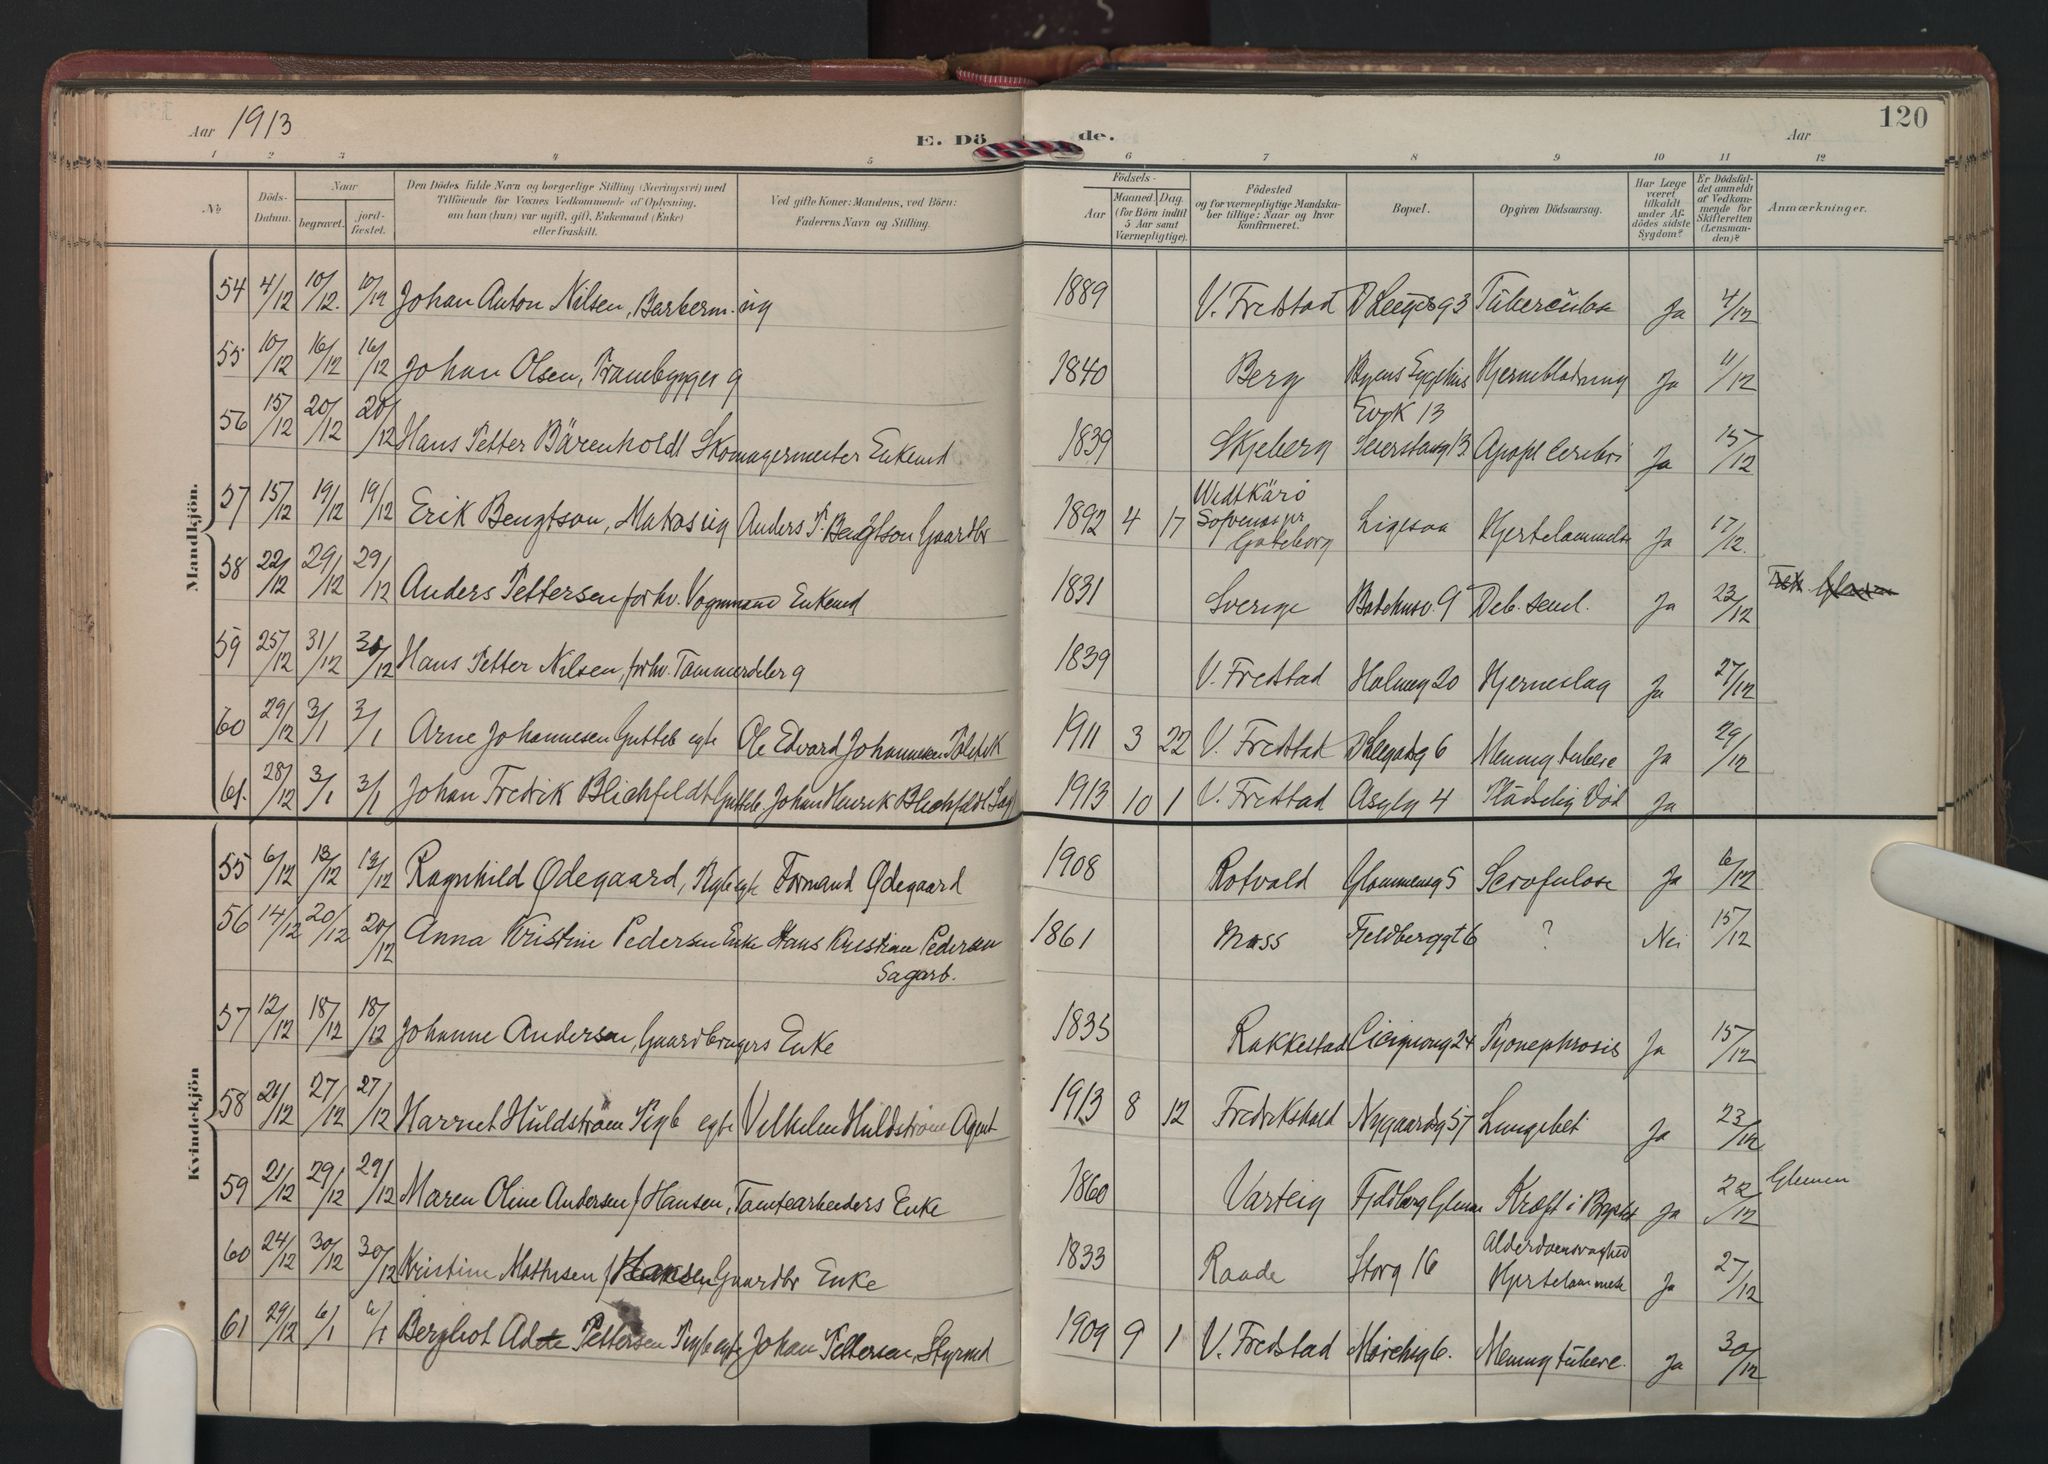 Aar 1913
E. Dö de.
Aar
120
1 2 3 4 5 6 7 8 9 10 11 12
No
Döds-Datum.
Naar
begravet.
jord-fæstet.
Den Dödes fulde Navn og borgerlige Stilling (Næringsvei) med
Tilföiende for Voxnes Vedkommende af Oplysning,
om han (hun) var ugift, gift, Enkemand (Enke)
eller fraskilt.
Ved gifte Koner: Mandens, ved Börn:
Faderens Navn og Stilling.
Födsels-
Aar
Maaned. Dag.
(for Börn indtil
5 Aar samt
Værnepligtige).
Födested
og for værnepligtige Mandska-
ber tillige: Naar og hvor
konfirmeret.
Bopæl.
Opgiven Dödsaarsag.
Har Læge
været
tilkaldt
under Af-
dödes sidste
Sygdom?
Er Dödsfal-
det anmeldt
af Vedkom-
mende for
Skifteretten
(Lensman-
den)?
Anmærkninger.
Mandkjön.
54 4/12 10/12. 10/12 Johan Anton Nilsen, Barberm. ug 1889 V. Fredstad 93 Tuberculose Ja 4/12
55 10/12 16/12 16/12 Johan Olsen, g 1840 Berg Byens Sygehus Hjerneblødning Ja 11/12
56 15/12 20/12 20/12 Hans Petter Bärenholdt Skomagermester Enkemd 1839 Skjeberg 13 Apopl. cerebri Ja 15/12
57 15/12 19/12 19/12 Erik Bengtson, Matros ug Anders P. Bengtson Gaardbr 1892 4 17 Göteborg Ligesaa Hjertelammelse Ja 17/12.
58 22/12 29/12 29/12 Anders Pettersen forhv. Vognmand Enkemd 1831 Sverige 9 Deb. senil. Ja 23/12
59 25/12 31/12 30/12 Hans Petter Nilsen, forhv. Tømmerdeler g 1839 V. Fredstad Holmeg 20 Hjerneslag Ja 27/12
60 29/12 3/1 3/1 Arne Johannesen Gutteb egte Ole Edvard Johannesen 1911 3 22 V. Fredstad 6 Mening tuberc Ja 29/12
61. 28/12 3/1 3/1 Johan Fredrik Blichfeldt Gutteb. Johan Henrik Blichfeldt 1913 10 1 V. Fredstad Asylg 4 Plådselig Død Ja
Kvindekjön
55 6/12 13/12 13/12 Ragnhild Ødegaard, Pigeb egte Formand Ødegaard 1908 Rotvold Glommeng 5 Scrofulose Ja 6/12
56 14/12 20/12 20/12 Anna Kristine Pedersen Enke Hans Kristian Pedersen
Sagarb. 1861 Moss Fjeldberggt 6 ? Nei 15/12
57 12/12 18/12 18/12 Johanne Andersen, Gaardbrugers Enke 1835 Rakkestad 24 Pyonephrosis Ja 15/12
58 21/12 27/12 27/12 Harriet Huldstrøm Pigb egte Vilhelm Huldstrøm Agent 1913 8 12 Fredrikshald Nygaardsg 57 Lungebet Ja 23/12
59 21/12 29/12 29/12 Maren Oline Andersen f Hansen, Tomtearbeiders Enke 1860 Varteig Fjeldberg Glemen Kræft i Brystet Ja 22/12 Glemen
60 24/12 30/12 30/12 Kristine Mathisen f Hansen, Gaardbr Enke 1833 Raade Storg 16 Alderdomssvaghed
Hjertelammelse Ja 27/12
61 29/12 6/1 6/1 Bergliot Pettersen Pigeb egte Johan Pettersen, Styrmd 1909 9 1 V. Fredstad 6. Mening tuberc. Ja 30/12